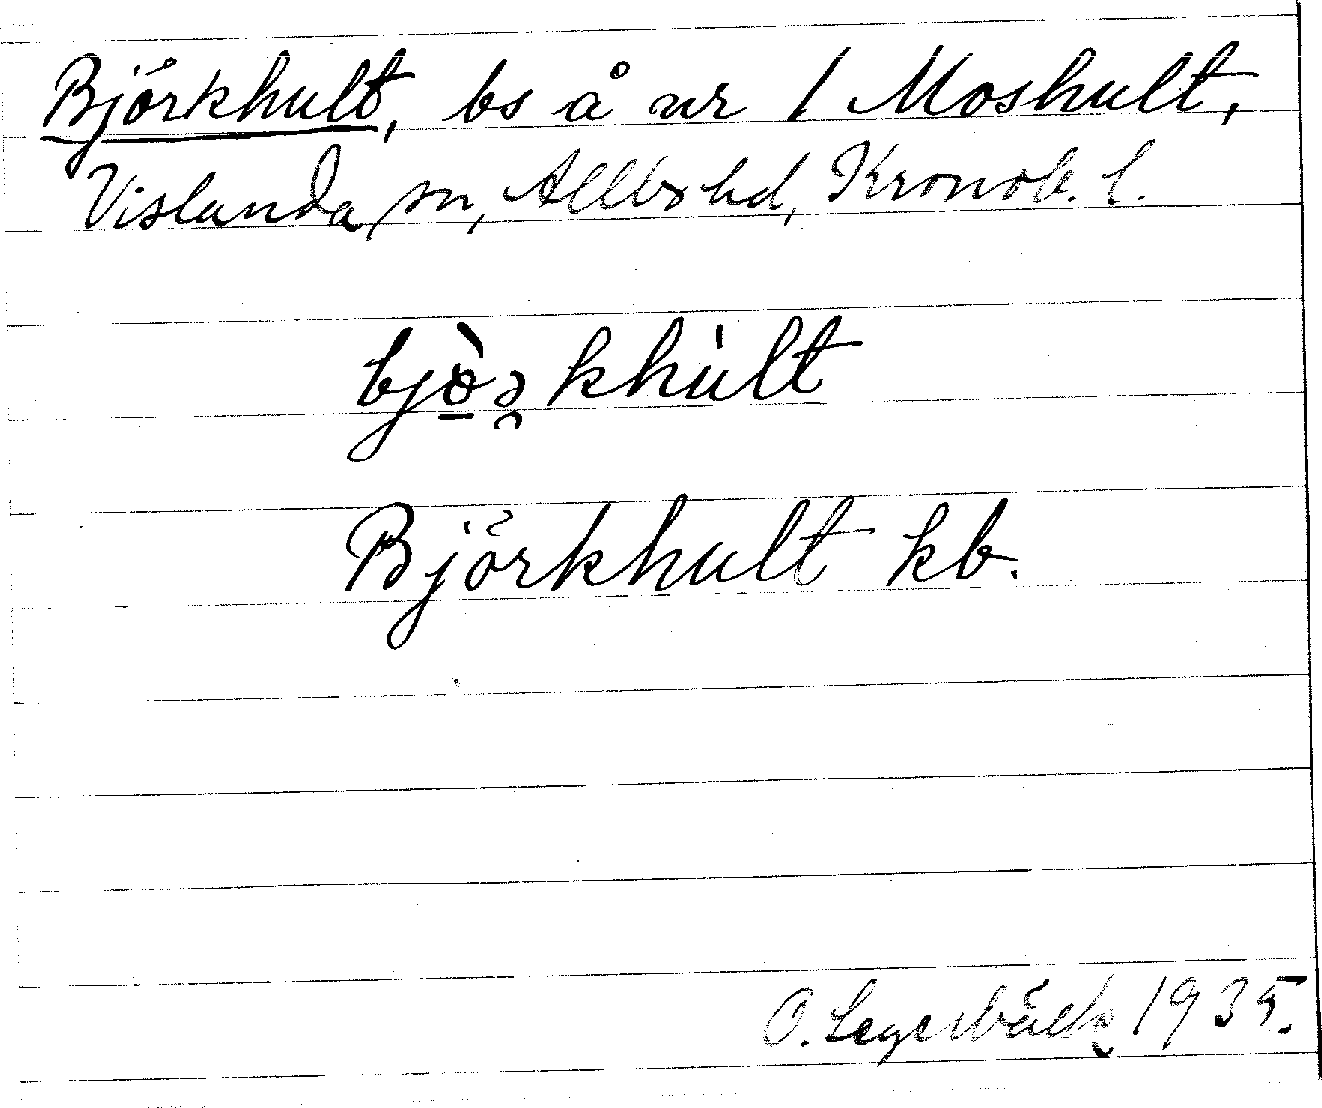 Björkhult, bs å nr 1 Moshult,
Vislanda sn, Allbo hd, Kronob. l.
bjò̱ə̯khùlt
Björkhult kb.
O. 1935.